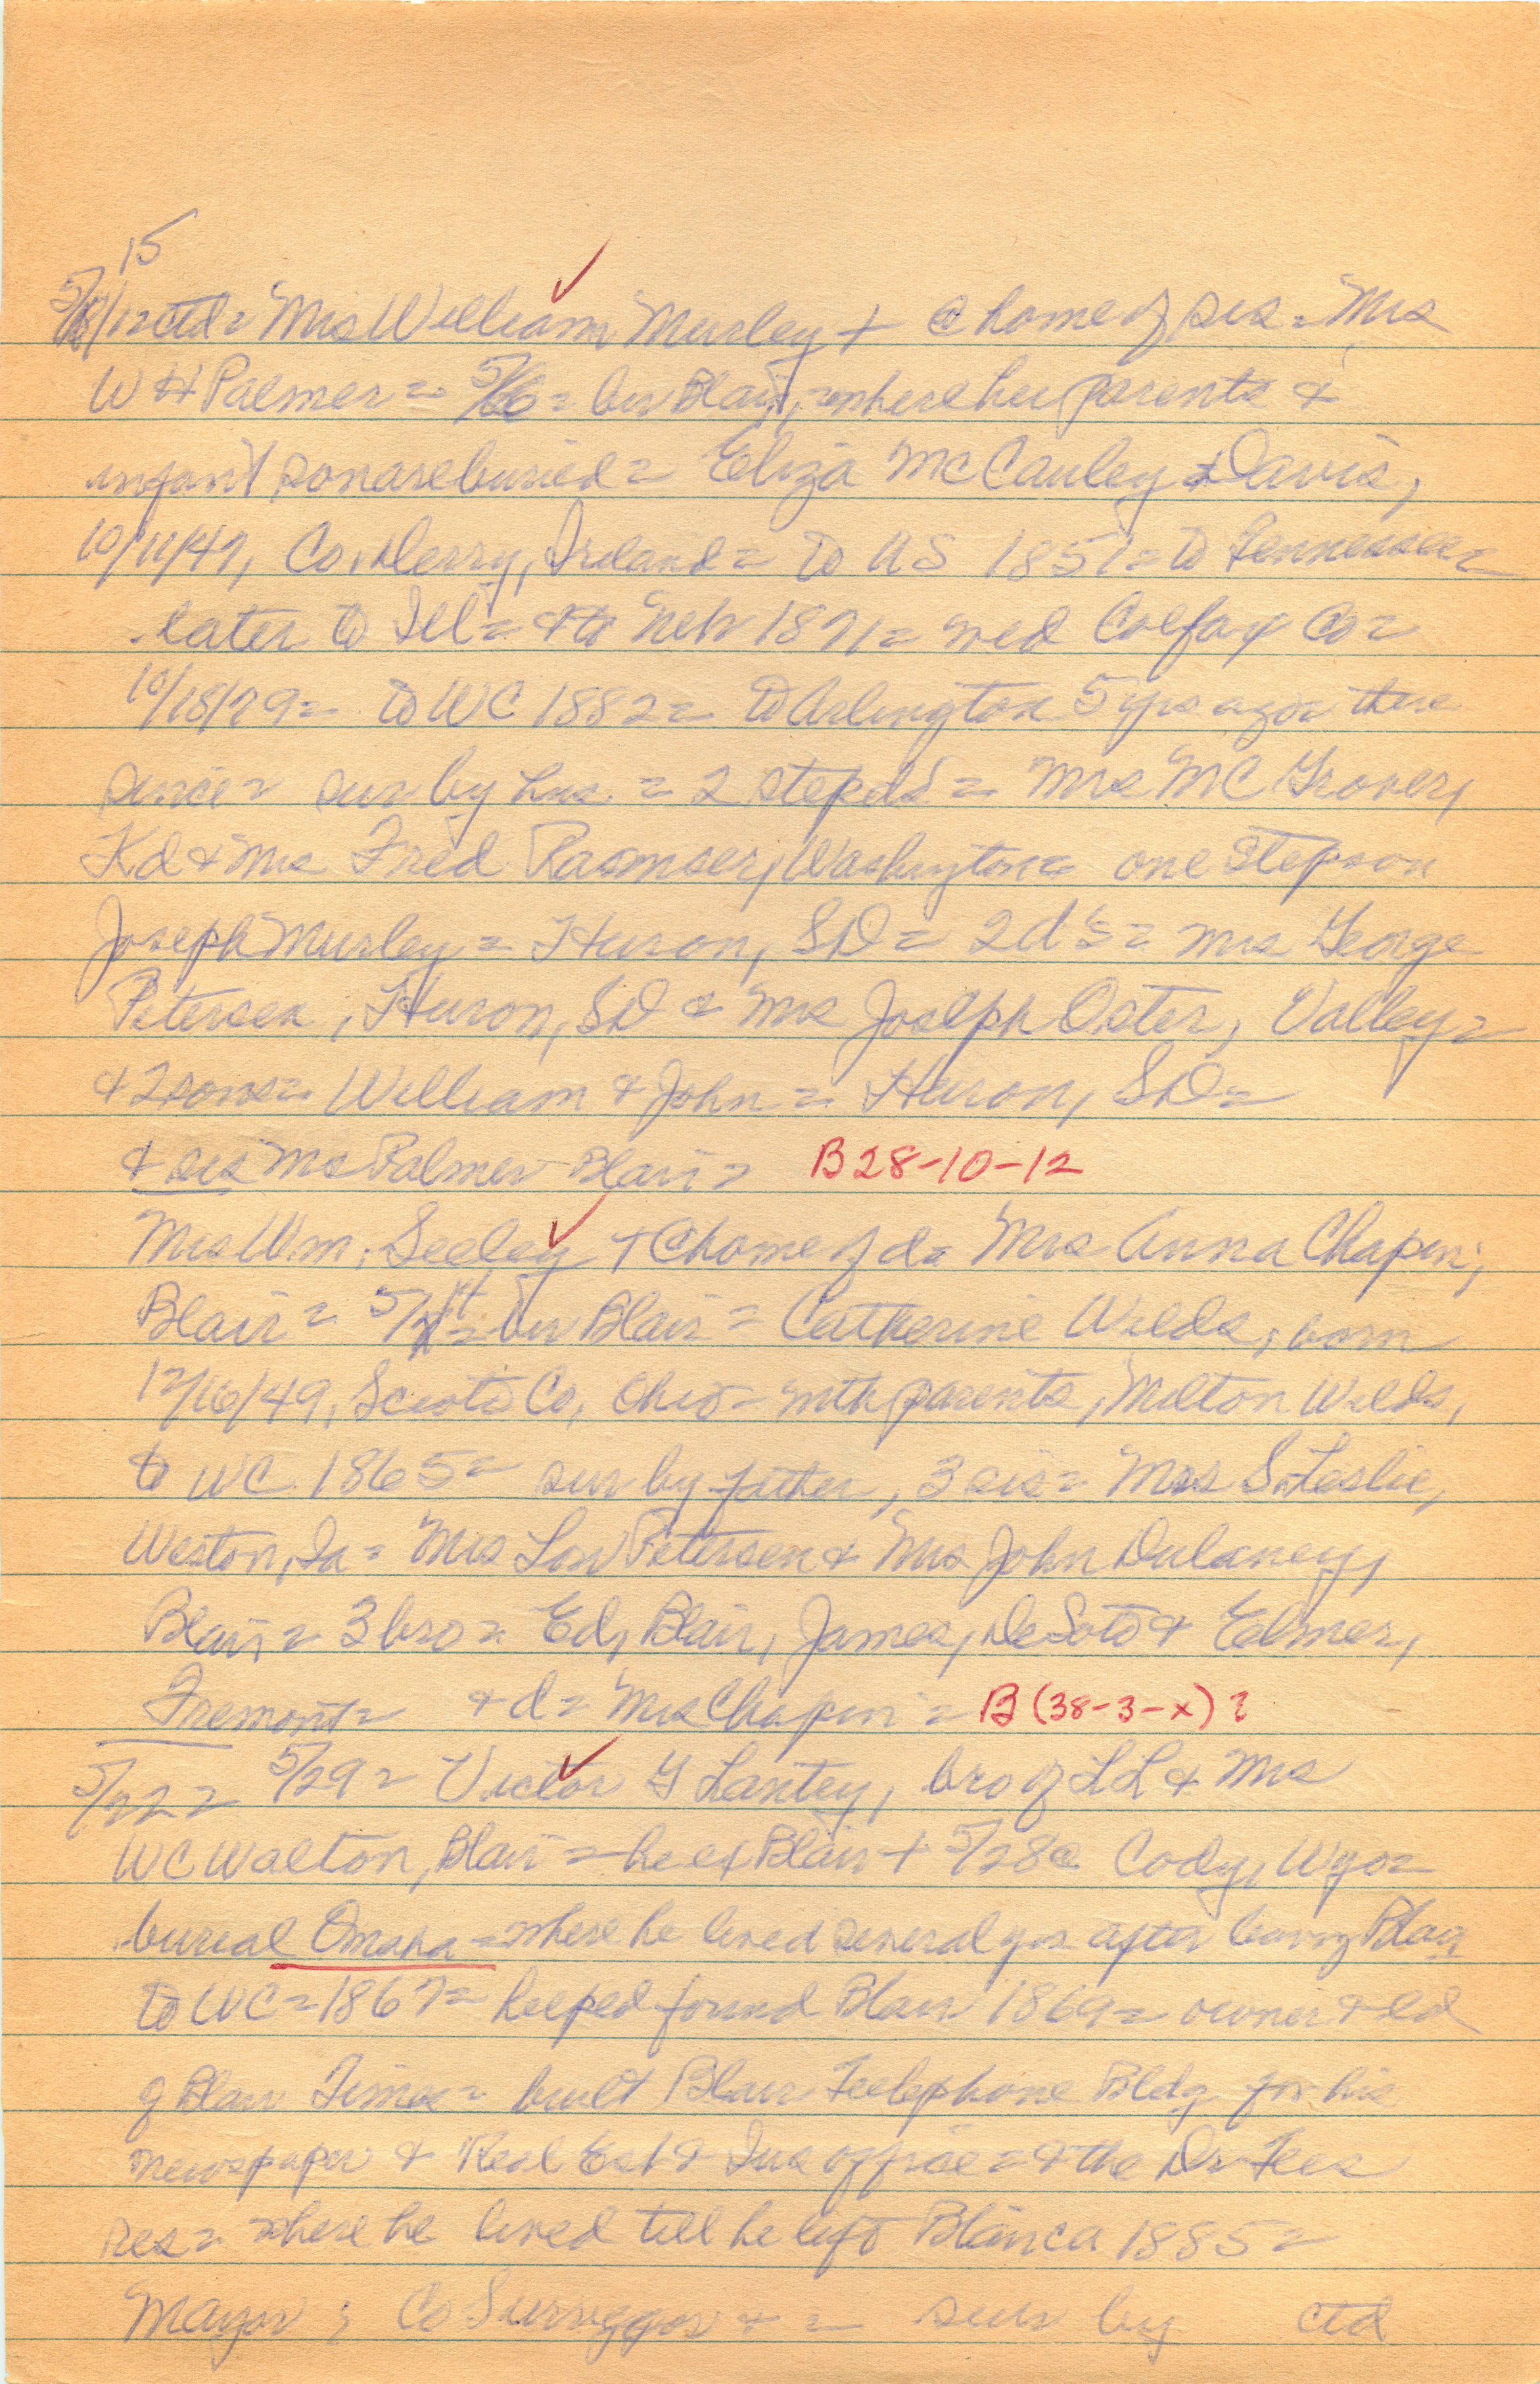 15
5/15/12 ctd = Mrs William Murley + @ home of sis = Mrs
W H Palmer = 5/26 = bur Blair, = where her parents &
infant son are buried = Eliza McCauley Davis,
10/11/47, Co. Derry, Ireland = to US 1851 = to Tennessee =
later to Ill = & to Neb 1871 = wed Colfax Co =
10/18/79 = to WC 1882 = to Arlington 5 yrs ago = there
since = sur by hus. = 2 stepd's = Mrs MC Grover,
Kd & Mrs Fred Rasmser, Washington = one stepson
Joseph Murley = Huron, SD = 2 d's = Mrs George
Petersen, Huron, SD & Mrs Joseph Oster, Valley =
& 2 sons = William & John = Huron, SD =
& sis Mrs Palmer Blair = B 28-10-12
Mrs Wm. Seeley + @ home of d = Mrs Anna Chapin,
Blair = 5/21st = bur Blair = Catherine Wilds, born
12/16/49, Scioto Co, Ohio = with parents, Milton Wilds,
to WC 1865 = sur by father, 3 sis = Mrs S. Leslie,
Weston, Ia = Mrs Lou Petersen & Mrs John Dulaney,
Blair = 3 bro = Ed, Blair, James, DeSoto & Elmer,
Fremont = & d = Mrs Chapin = B (38-3-x) ?
5/22 = 5/29 = Victor G Lantry, bro of LL & Mrs
WC Walton, Blair = he ex Blair + 5/28 @ Cody, Wyo =
burial Omaha = where he lived several yrs after leaving Blair
to WC = 1867 = helped found Blair 1869 = owner & ed
of Blair Times = built Blair Telephone Bldg for his
newspaper & Real Est & Ins office = & the Dr Fees
res = where he lived till he left Blair ca 1885 =
Mayor; Co Surveyor & = sur by ctd